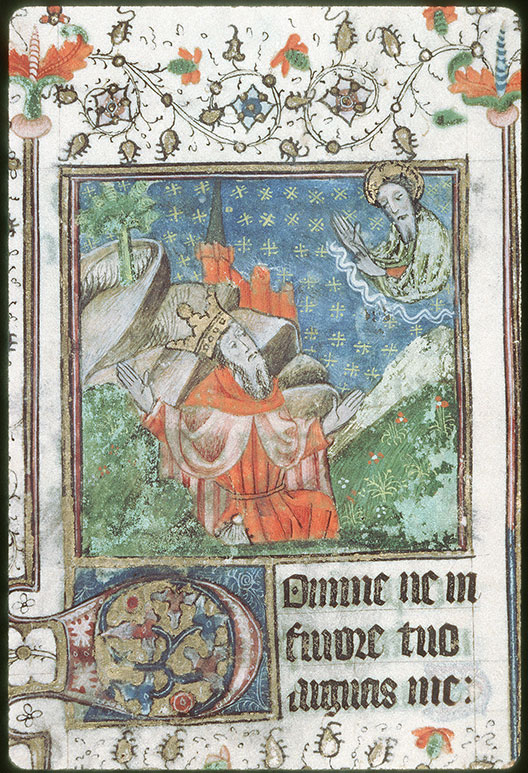 DOmine ne in
furore tuo
arguas me: